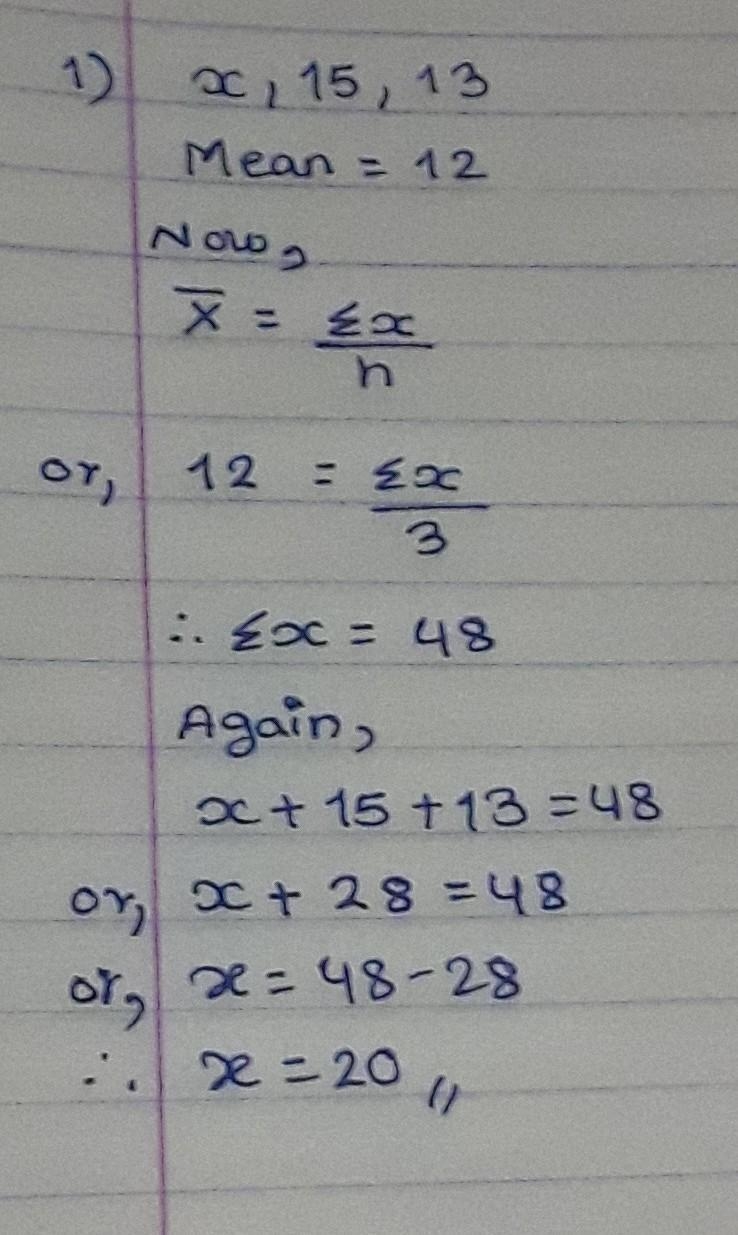 1) x, 15, 13
Mean = 12
Now,
x̄ = Σx/n
or, 12 = Σx/3
∴ Σx = 48
Again,
x + 15 + 13 = 48
or, x + 28 = 48
or, x = 48 - 28
∴ x = 20 ,,